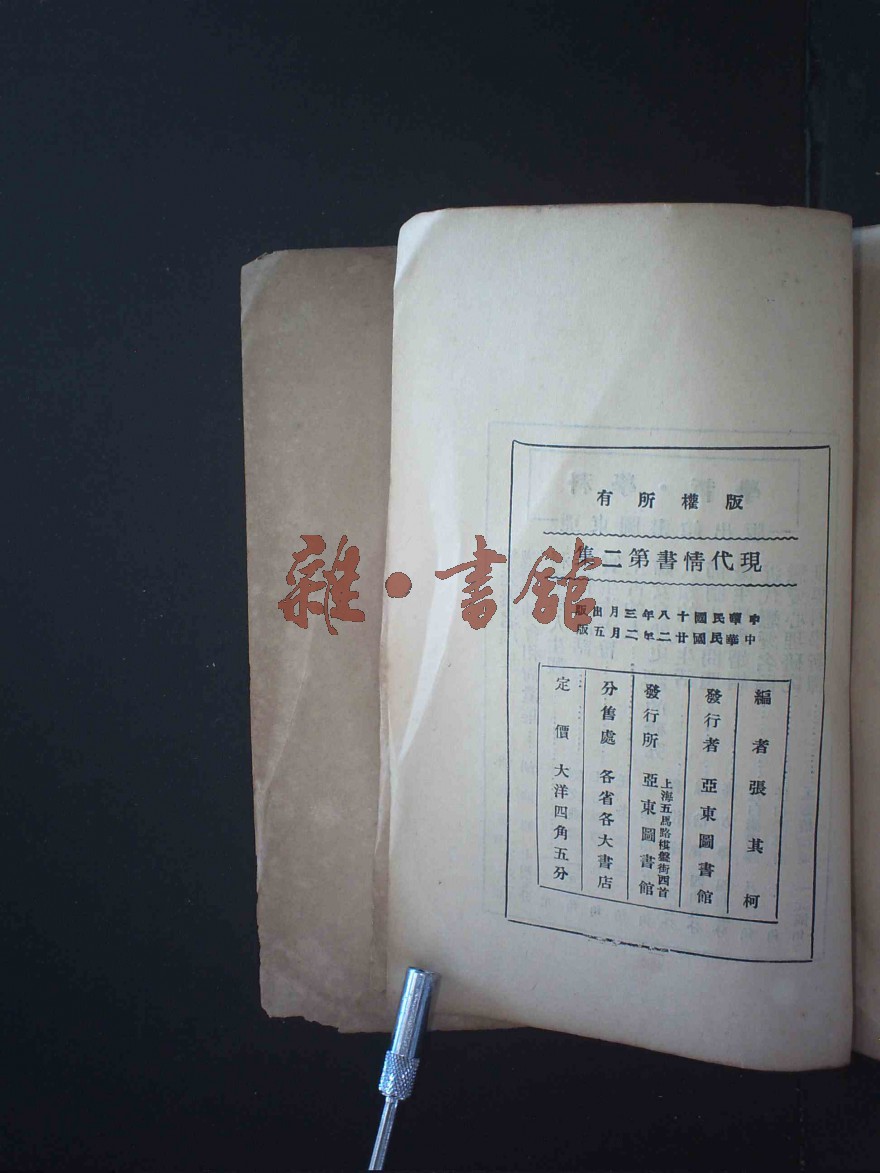 版權所有
現代情書第二集
中華民國十八年三月出版
中華民國廿二年二月五版
編者張其柯
發行者亞東圖書館
發行所亞東圖書館
上海五馬路棋盤街西首
分售處各省各大書店
定價大洋四角五分
雜·書館